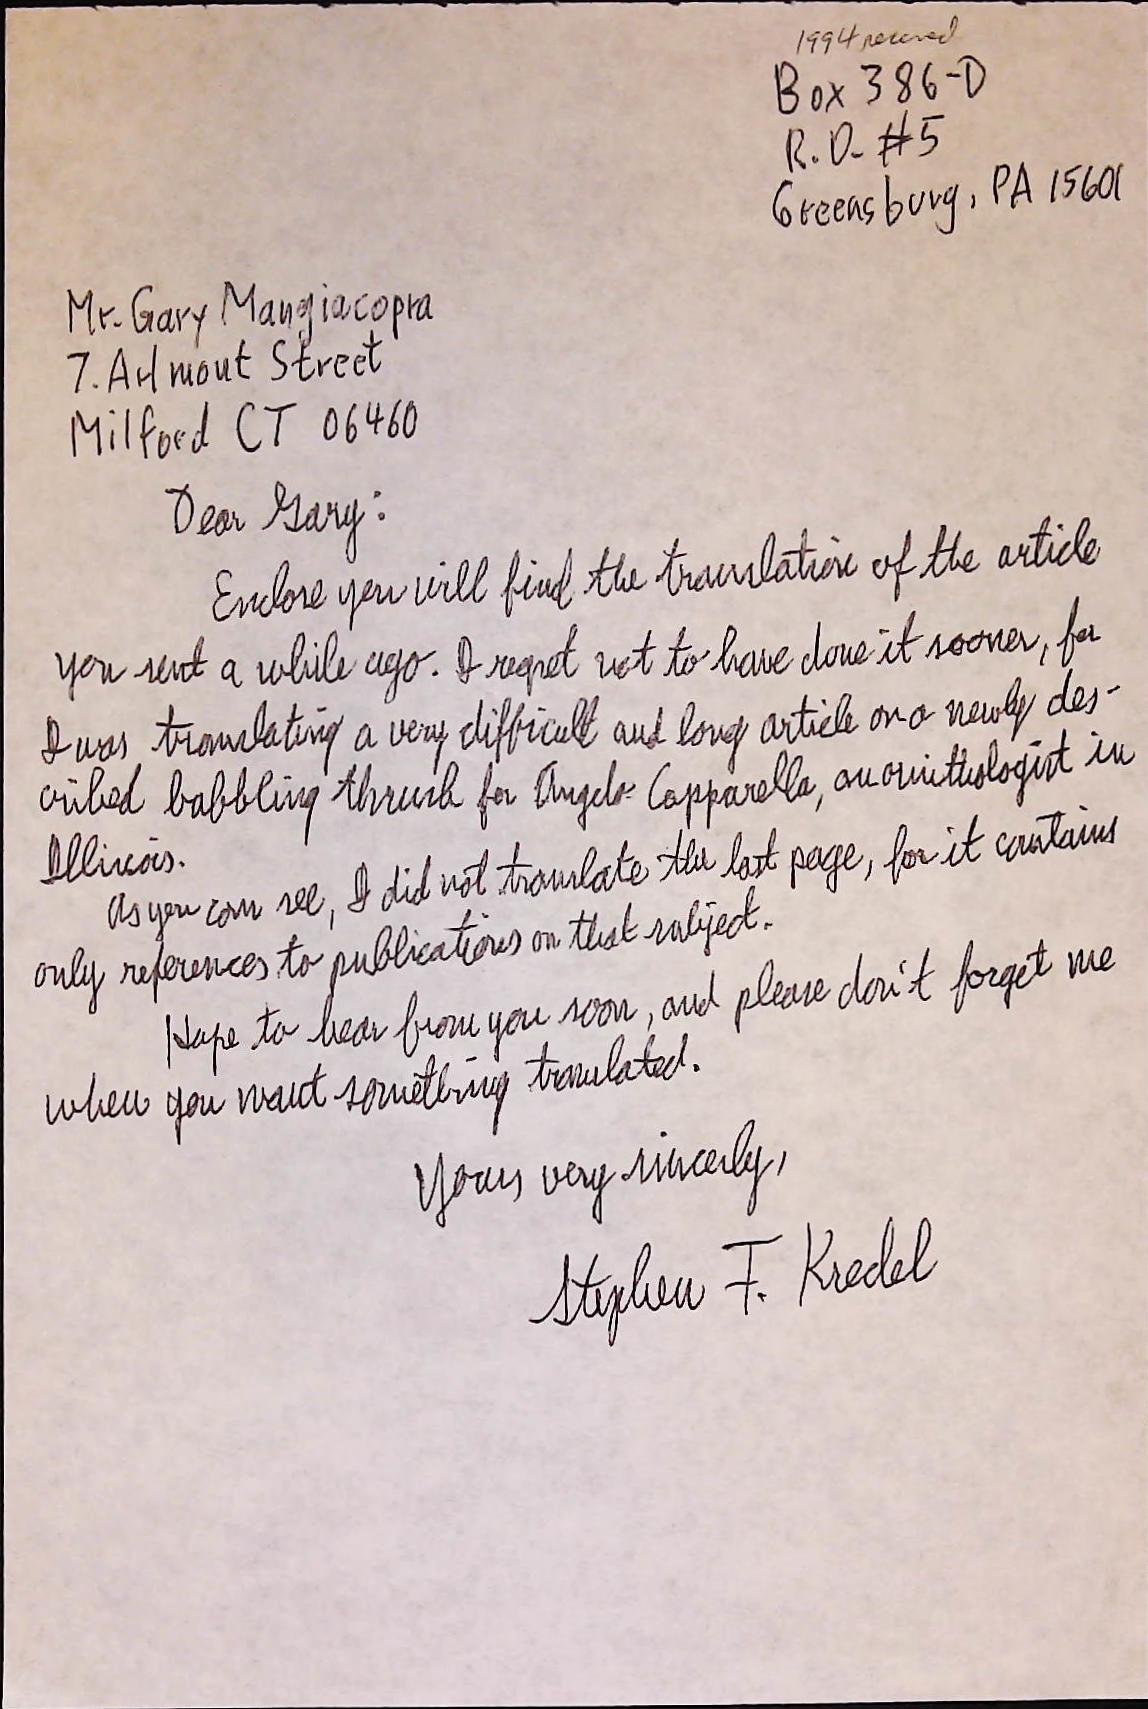 1994 received
Box 386-D
R.D. #5
Greensburg, PA 15601
Mr. Gary Mangiacopra
7. Arlmont Street
Milford CT 06460
Dear Gary:
Enclose you will find the translation of the article
you sent a while ago. I regret not to have done it sooner, for
I was translating a very difficult and long article on a newly des-
cribed babbling thrush for Angelo Capparella, an ornithologist in
Illinois.
As you can see, I did not translate the last page, for it contains
only references to publications on that subject.
Hope to hear from you soon, and please don't forget me
when you want something translated.
Yours very sincerly,
Stephen F. Kredel